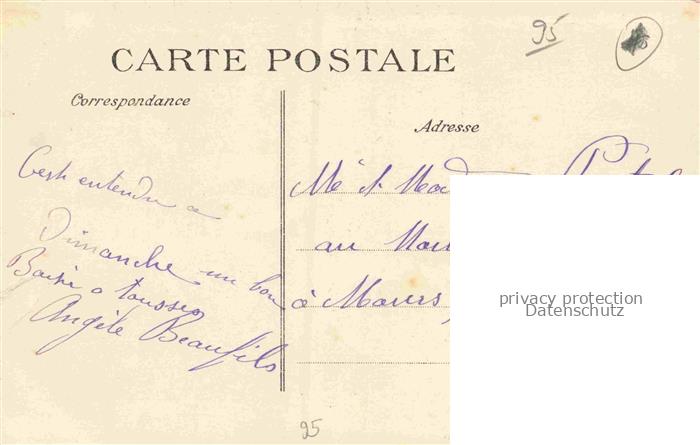 95
CARTE POSTALE
Correspondance
Adresse
C'est entendu a
Dimanche un bon
Baisé a tousses
Angèle Beaufils
Mr et Mad
au
à Mours,
privacy protection
Datenschutz
95